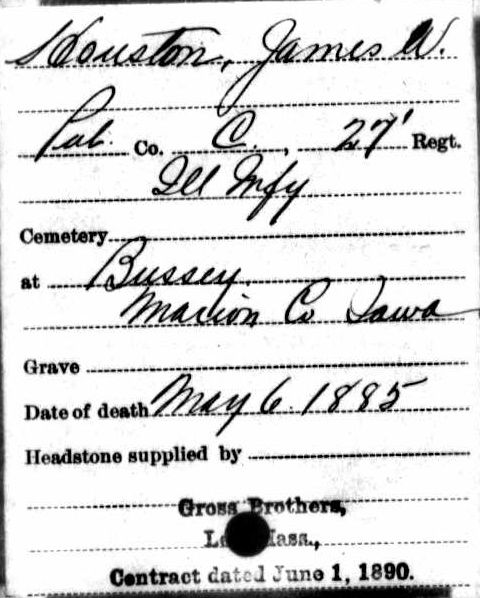 Houston, James W.
Co. C., 27' Regt.
Ill Infy
Cemetery
at Bussey.
Marion Co Iowa
Grave
Date of death May 6. 1885
Headstone supplied by
Gross Brothers,
Mass.,
Contract dated June 1, 1890.